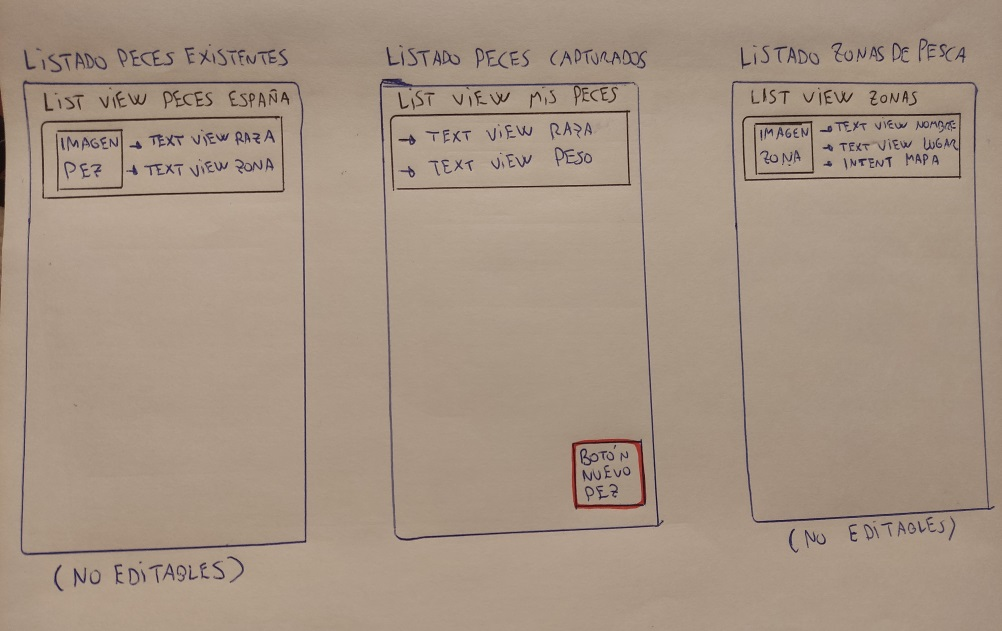 LISTADO PECES EXISTENTES
LIST VIEW PECES ESPAÑA
IMAGEN
PEZ
→ TEXT VIEW RAZA
→ TEXT VIEW ZONA
(NO EDITABLES)
LISTADO PECES CAPTURADOS
LIST VIEW MIS PECES
→ TEXT VIEW RAZA
→ TEXT VIEW PESO
BOTÓN
NUEVO
PEZ
LISTADO ZONAS DE PESCA
LIST VIEW ZONAS
IMAGEN
ZONA
→ TEXT VIEW NOMBRE
→ TEXT VIEW LUGAR
→ INTENT MAPA
(NO EDITABLES)